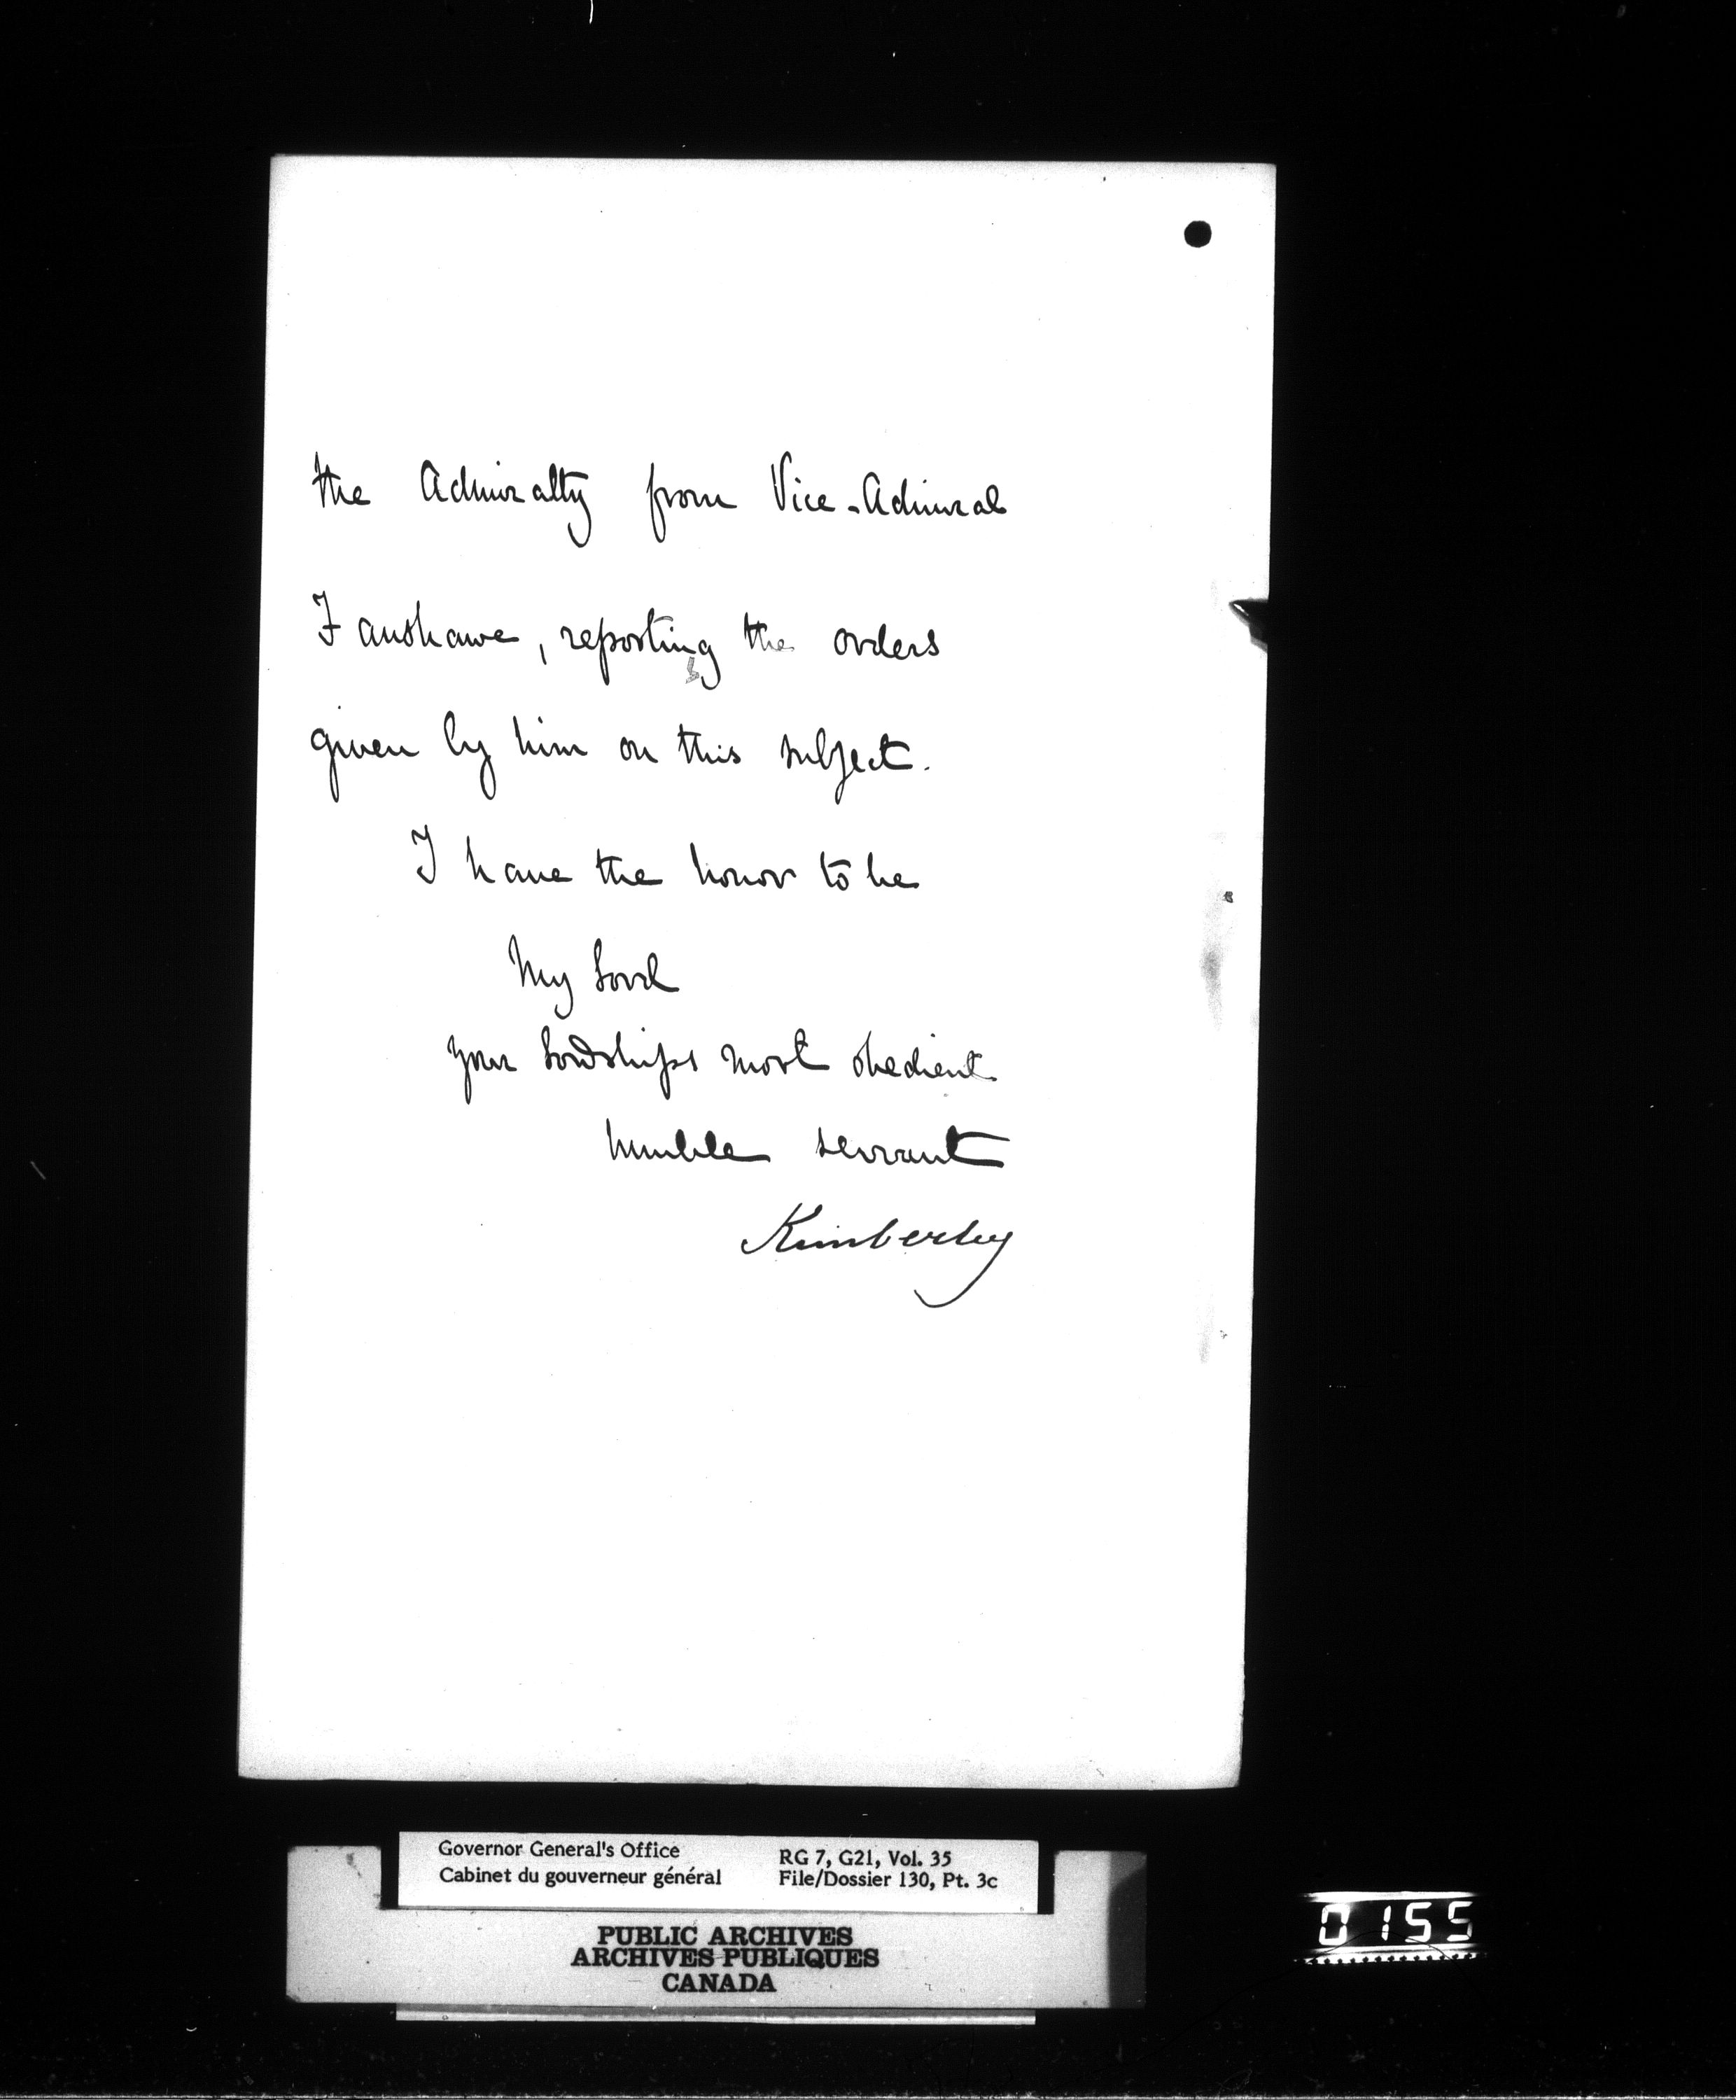 the Admiralty from Vice-Admiral
Fanshawe, reporting the orders
given by him on this subject.
I have the honor to be
My Lord
your Lordships most obedient
humble servant
Kimberley
Governor General's Office
Cabinet du gouverneur général
RG 7, G21, Vol. 35
File/Dossier 130, Pt. 3c
PUBLIC ARCHIVES
ARCHIVES PUBLIQUES
CANADA
0155